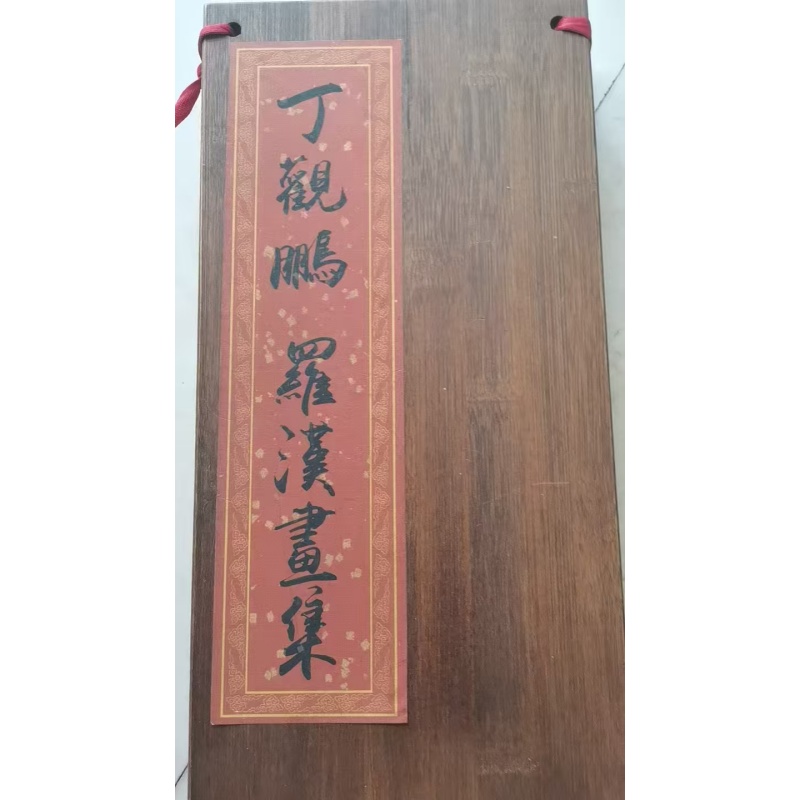 丁觀鵬 羅漢畫集